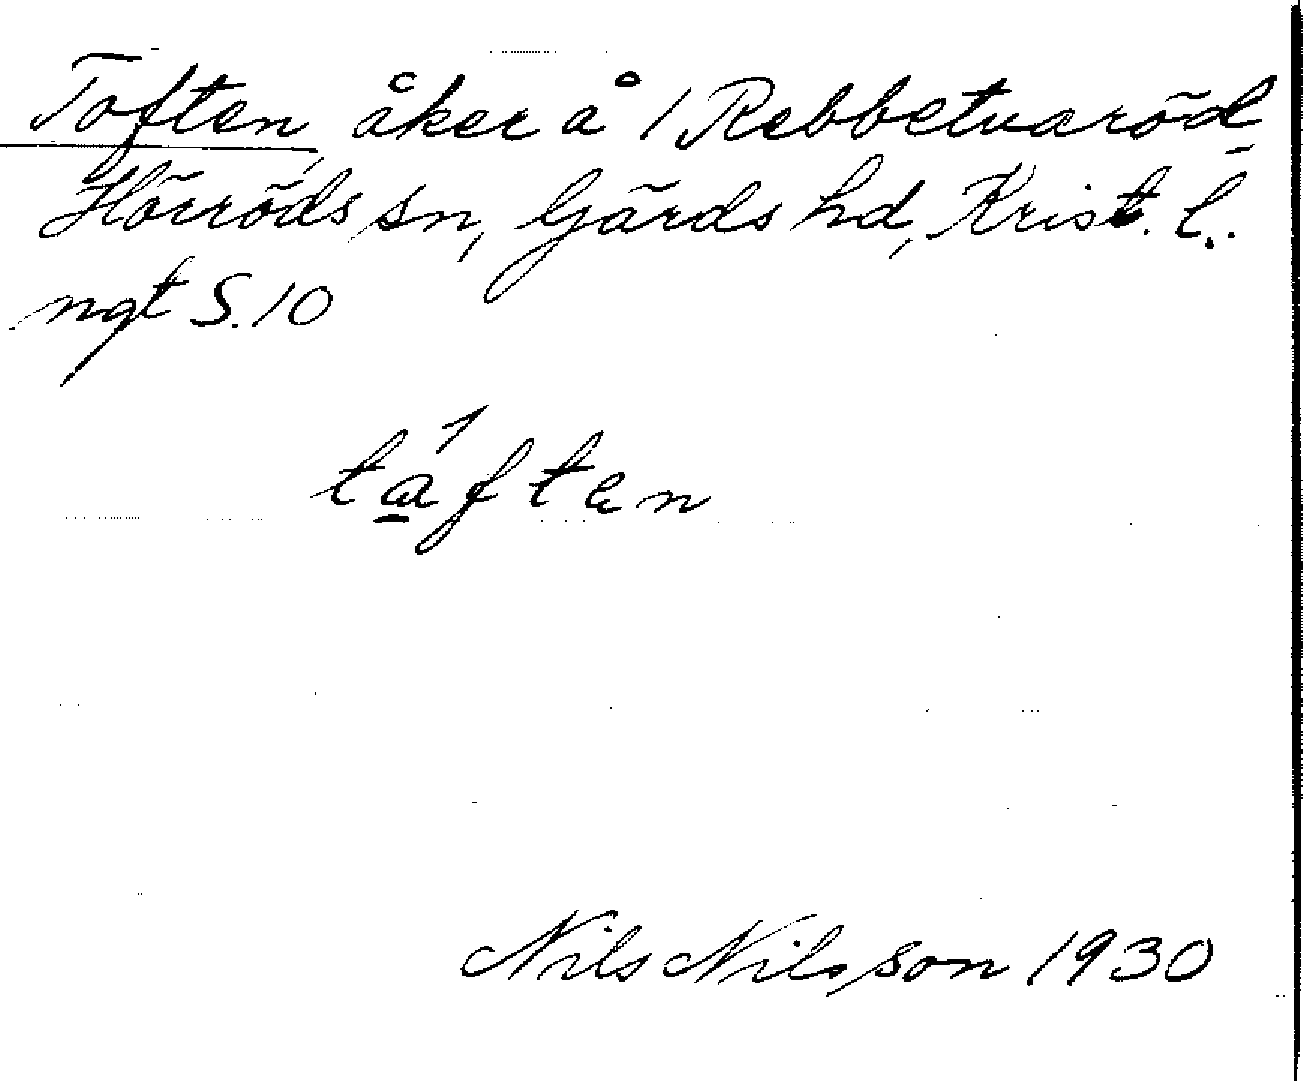 Toften, åker å 1 Rebbetuaröd
Hörröds sn, Gärds hd, Krist. l.
ngt S. 10
táften
Nils Nilsson 1930